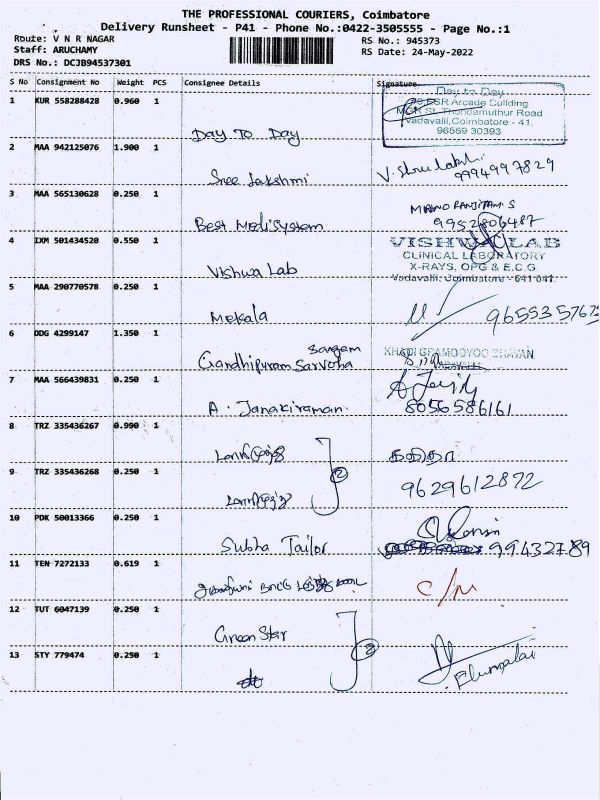 THE PROFESSIONAL COURIERS, Coimbatore
Delivery Runsheet - P41 - Phone No.:0422-3505555 - Page No.:1
Route: V N R NAGAR
RS No.: 945373
Staff: ARUCHAMY
RS Date: 24-May-2022
DRS No.: DCJB94537301
S No Consignment No Weight PCS Consignee Details Signature
1 KUR 558288428 0.960 1
Day To Day
Day to Day
PSR Arcade
Thondamuthur Road
Vadavalli, Coimbatore - 41.
96559 30393
2 MAA 942125076 1.900 1
Sree Lakshmi
9994997829
3 MAA 565130628 0.250 1
Best Medisystem
9952806487
4 IXM 501434520 0.550 1
Vishwa Lab
VISHWA LAB
CLINICAL LABORATORY
X-RAYS, OPG & E.C.G
Vadavalli, Coimbatore - 641 041.
5 MAA 290770578 0.250 1
Mekala
6 DDG 4299147 1.350 1
Gandhipuram
KHADI GRAMODYOG BHAVAN
VADAVALLI
7 MAA 566439831 0.250 1
A. Janakiraman
8056586161
8 TRZ 335436267 0.990 1
9 TRZ 335436268 0.250 1
2
9629612872
10 PDK 50013366 0.250 1
Subha Tailor
99432789
11 TEN 7272133 0.619 1
12 TUT 6047139 0.250 1
Green Star
13 STY 779474 0.250 1
Elumalai